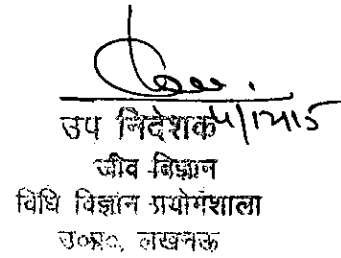 उप निदेशक
जीव विज्ञान
विधि विज्ञान प्रयोगशाला
उ०प्र०, लखनऊ